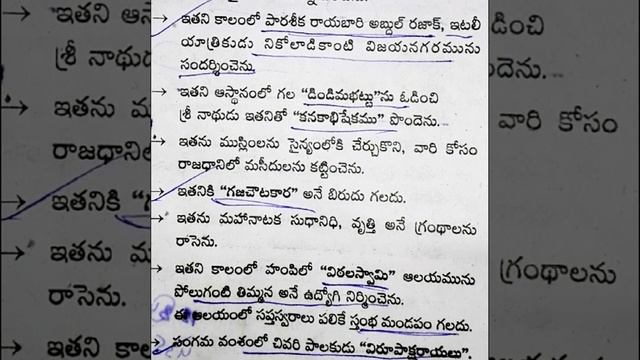 → ఇతని కాలంలో పారశీక రాయబారి అబ్దుల్ రజాక్, ఇటలీ
యాత్రికుడు నికోలాడికాంటి విజయనగరమును
సందర్శించెను.
→ ఇతని ఆస్థానంలో గల "డిండిమభట్టు"ను ఓడించి
శ్రీ నాథుడు ఇతనితో "కనకాభిషేకము" పొందెను.
→ ఇతను ముస్లింలను సైన్యంలోకి చేర్చుకొని, వారి కోసం
రాజధానిలో మసీదులను కట్టించెను.
→ ఇతనికి "గజచౌటకార" అనే బిరుదు గలదు.
→ ఇతను మహానాటక సుధానిధి, వృత్తి అనే గ్రంథాలను
రాసెను.
→ ఇతని కాలంలో హంపిలో "విఠలస్వామి" ఆలయమును
పోలుగంటి తిమ్మన అనే ఉద్యోగి నిర్మించెను.
ఈ ఆలయంలో సప్తస్వరాలు పలికే స్తంభ మండపం గలదు.
→ సంగమ వంశంలో చివరి పాలకుడు "విరూపాక్షరాయలు".